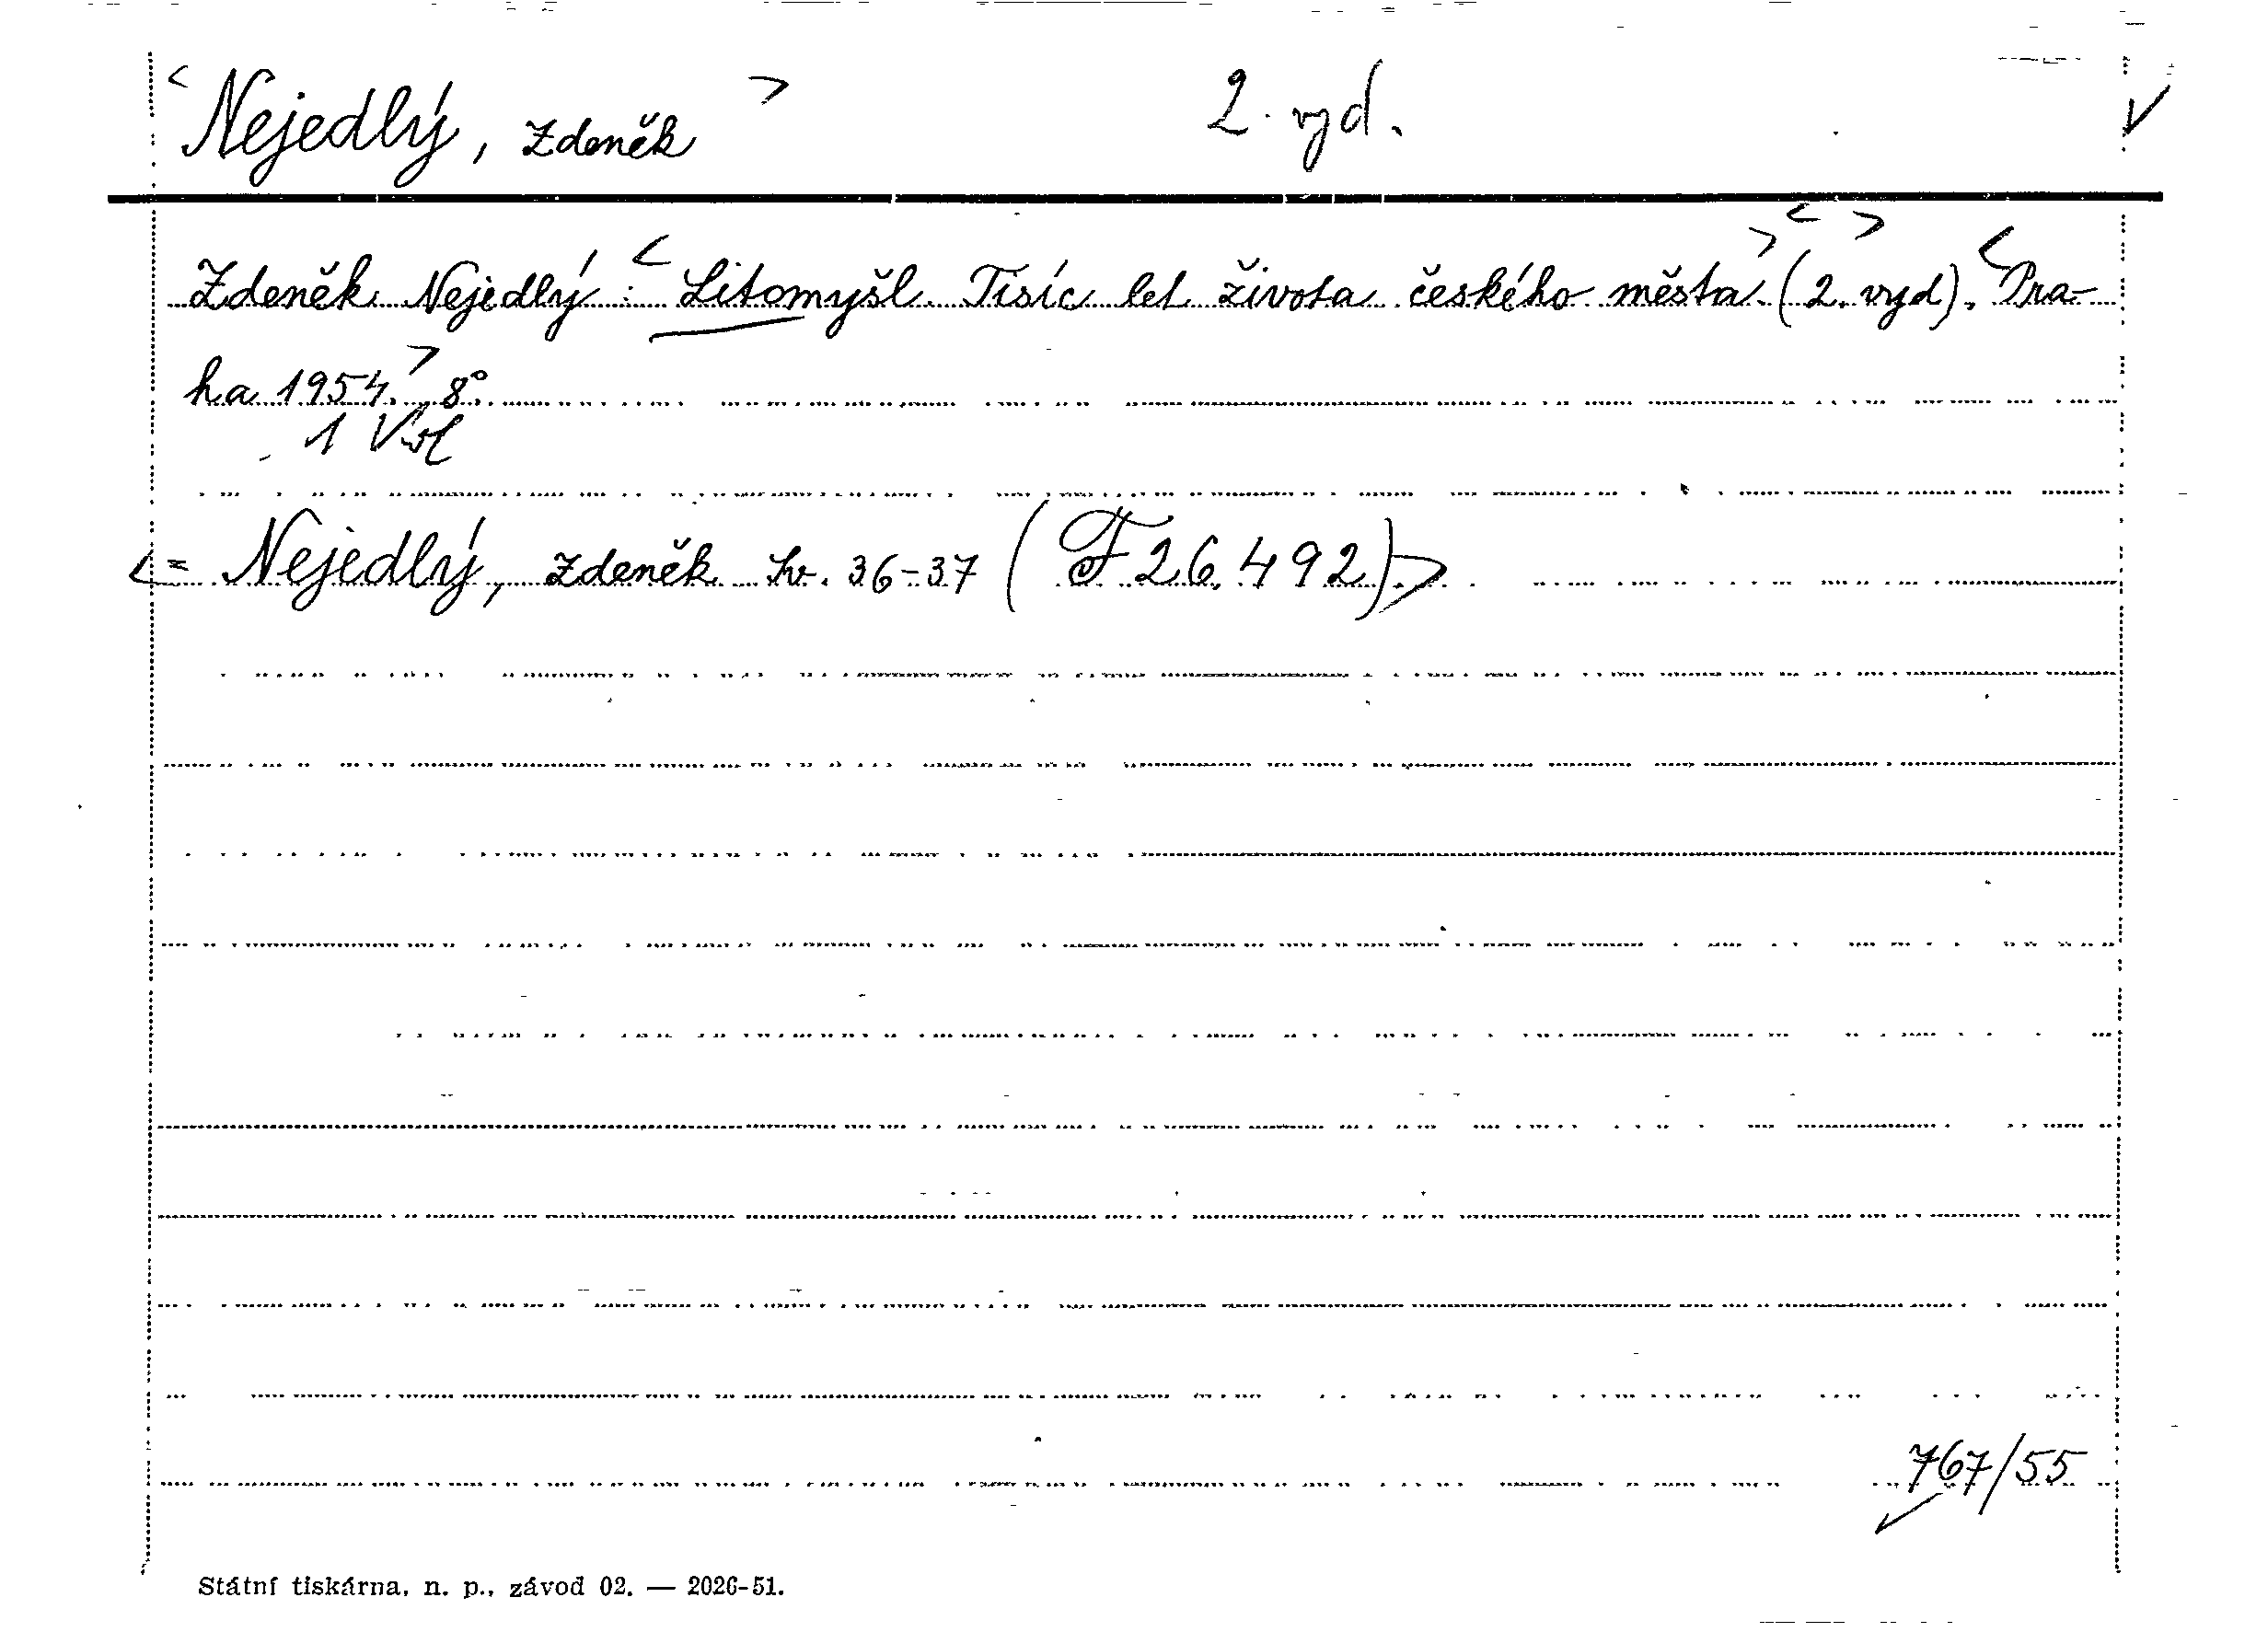 < Nejedlý, Zdeněk > 2. vyd. √
Zdeněk Nejedlý : < Litomyšl. Tisíc let života českého města. > (< 2. vyd >). < Pra-
ha 1954. > 8°.
1 Vol
<= Nejedlý, Zdeněk Sv. 36-37 (F 26.492) >
767/55
Státní tiskárna, n. p., závod 02. — 2026-51.